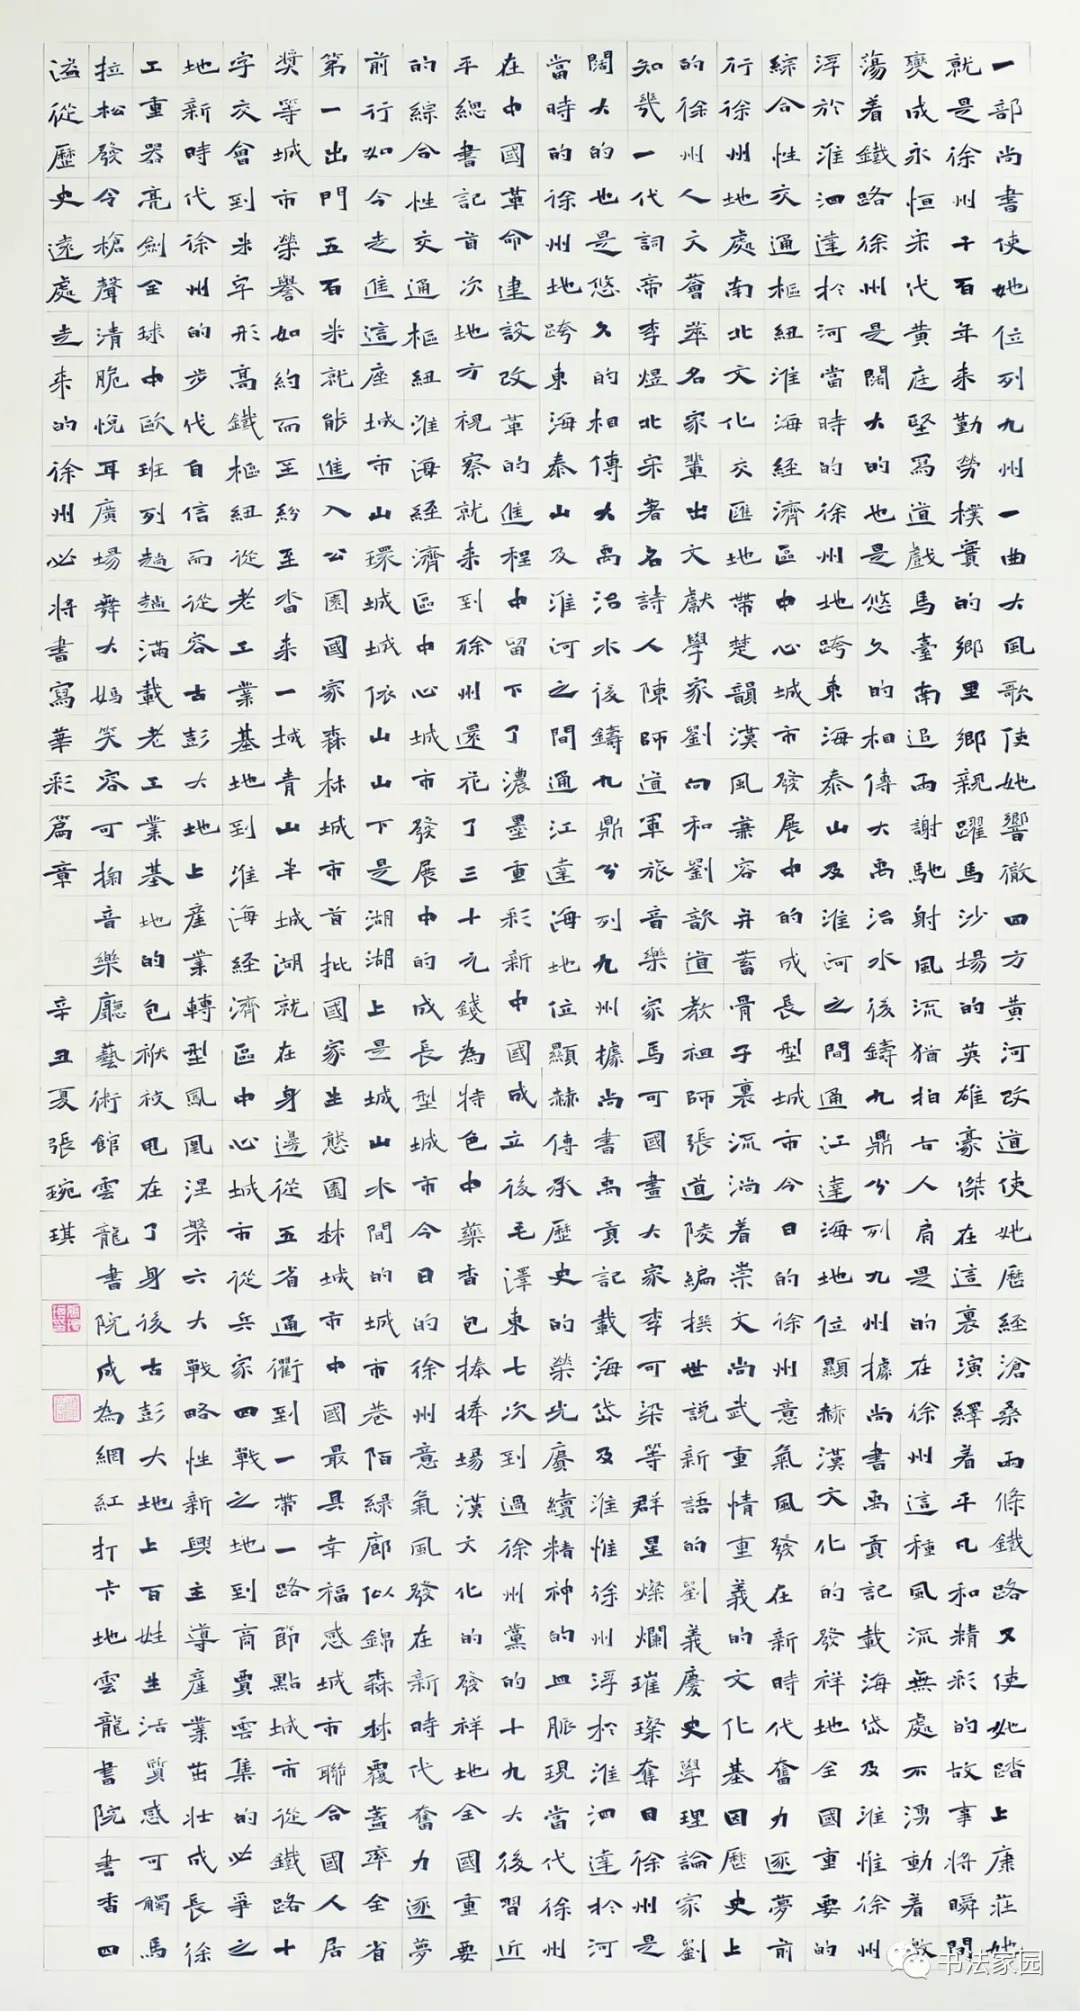 一部尚書使她位列九州一曲大風歌使她響徹四方黃河改道使她歷經滄桑兩條鐵路又使她踏上康莊她
就是徐州千百年來勤勞樸實的鄉里鄉親躍馬沙場的英雄豪傑在這裏演繹着平凡和精彩的故事將瞬間
變成永恒宋代黃庭堅寫道戲馬臺南追兩謝馳射風流猶拍古人肩是的在徐州這種風流無處不湧動着激
蕩着鐵路徐州是闊大的也是悠久的相傳大禹治水後鑄九鼎分列九州據尚書禹貢記載海岱及淮惟徐州
浮於淮泗達於河當時的徐州地跨東海泰山及淮河之間通江達海地位顯赫漢文化的發祥地全國重要的
綜合性交通樞紐淮海經濟區中心城市發展中的成長型城市今日的徐州意氣風發在新時代奮力逐夢前
行徐州地處南北文化交匯地帶楚韻漢風兼容并蓄骨子裏流淌着崇文尚武重情重義的文化基因歷史上
的徐州人文薈萃名家輩出文獻學家劉向和劉歆道教祖師張道陵編撰世說新語的劉義慶史學理論家劉
知幾一代詞帝李煜北宋著名詩人陳師道軍旅音樂家馬可國畫大家李可染等群星燦爛璀璨奪目徐州是
闊大的也是悠久的相傳大禹治水後鑄九鼎分列九州據尚書禹貢記載海岱及淮惟徐州浮於淮泗達於河
當時的徐州地跨東海泰山及淮河之間通江達海地位顯赫傳承歷史的榮光賡續精神的血脈現當代徐州
在中國革命建設改革的進程中留下了濃墨重彩新中國成立後毛澤東七次到過徐州黨的十九大後習近
平總書記首次地方視察就來到徐州還花了三十元錢為特色中藥香包捧捧場漢文化的發祥地全國重要
的綜合性交通樞紐淮海經濟區中心城市發展中的成長型城市今日的徐州意氣風發在新時代奮力逐夢
前行如今走進這座城市山環城城依山山下是湖湖上是城山水間的城市巷陌綠廊似錦森林覆蓋率全省
第一出門五百米就能進入公園國家森林城市首批國家生態園林城市中國最具幸福感城市聯合國人居
獎等城市榮譽如約而至紛至沓來一城青山半城湖就在身邊從五省通衢到一帶一路節點城市從鐵路十
字交會到米字形高鐵樞紐從老工業基地到淮海經濟區中心城市從兵家四戰之地到商賈雲集的必爭之
地新時代徐州的步代自信而從容古彭大地上產業轉型鳳凰涅槃六大戰略性新興主導產業茁壯成長徐
工重器亮劍全球中歐班列趟趟滿載老工業基地的包袱被甩在了身後古彭大地上百姓生活質感可觸馬
拉松發令槍聲清脆悅耳廣場舞大媽笑容可掬音樂廳藝術館雲龍書院成為網紅打卡地雲龍書院書香四
溢從歷史遠處走來的徐州必將書寫華彩篇章
辛丑夏張琬琪
书法家园